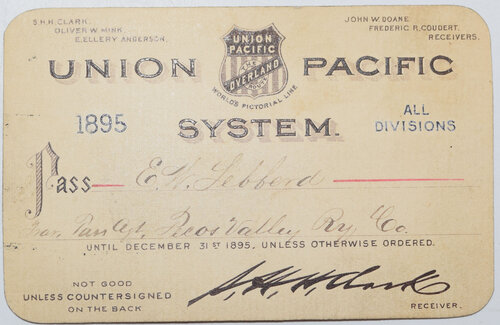 S.H.H. CLARK,
OLIVER W. MINK,
E. ELLERY ANDERSON,
JOHN W. DOANE
FREDERIC R. COUDERT,
RECEIVERS.
UNION PACIFIC
THE OVERLAND ROUTE
WORLD'S PICTORIAL LINE
UNION PACIFIC
SYSTEM.
1895
ALL DIVISIONS
Pass E.W.
Valley Ry. Co.
UNTIL DECEMBER 31ST 1895, UNLESS OTHERWISE ORDERED.
NOT GOOD
UNLESS COUNTERSIGNED
ON THE BACK
S.H.H. Clark
RECEIVER.